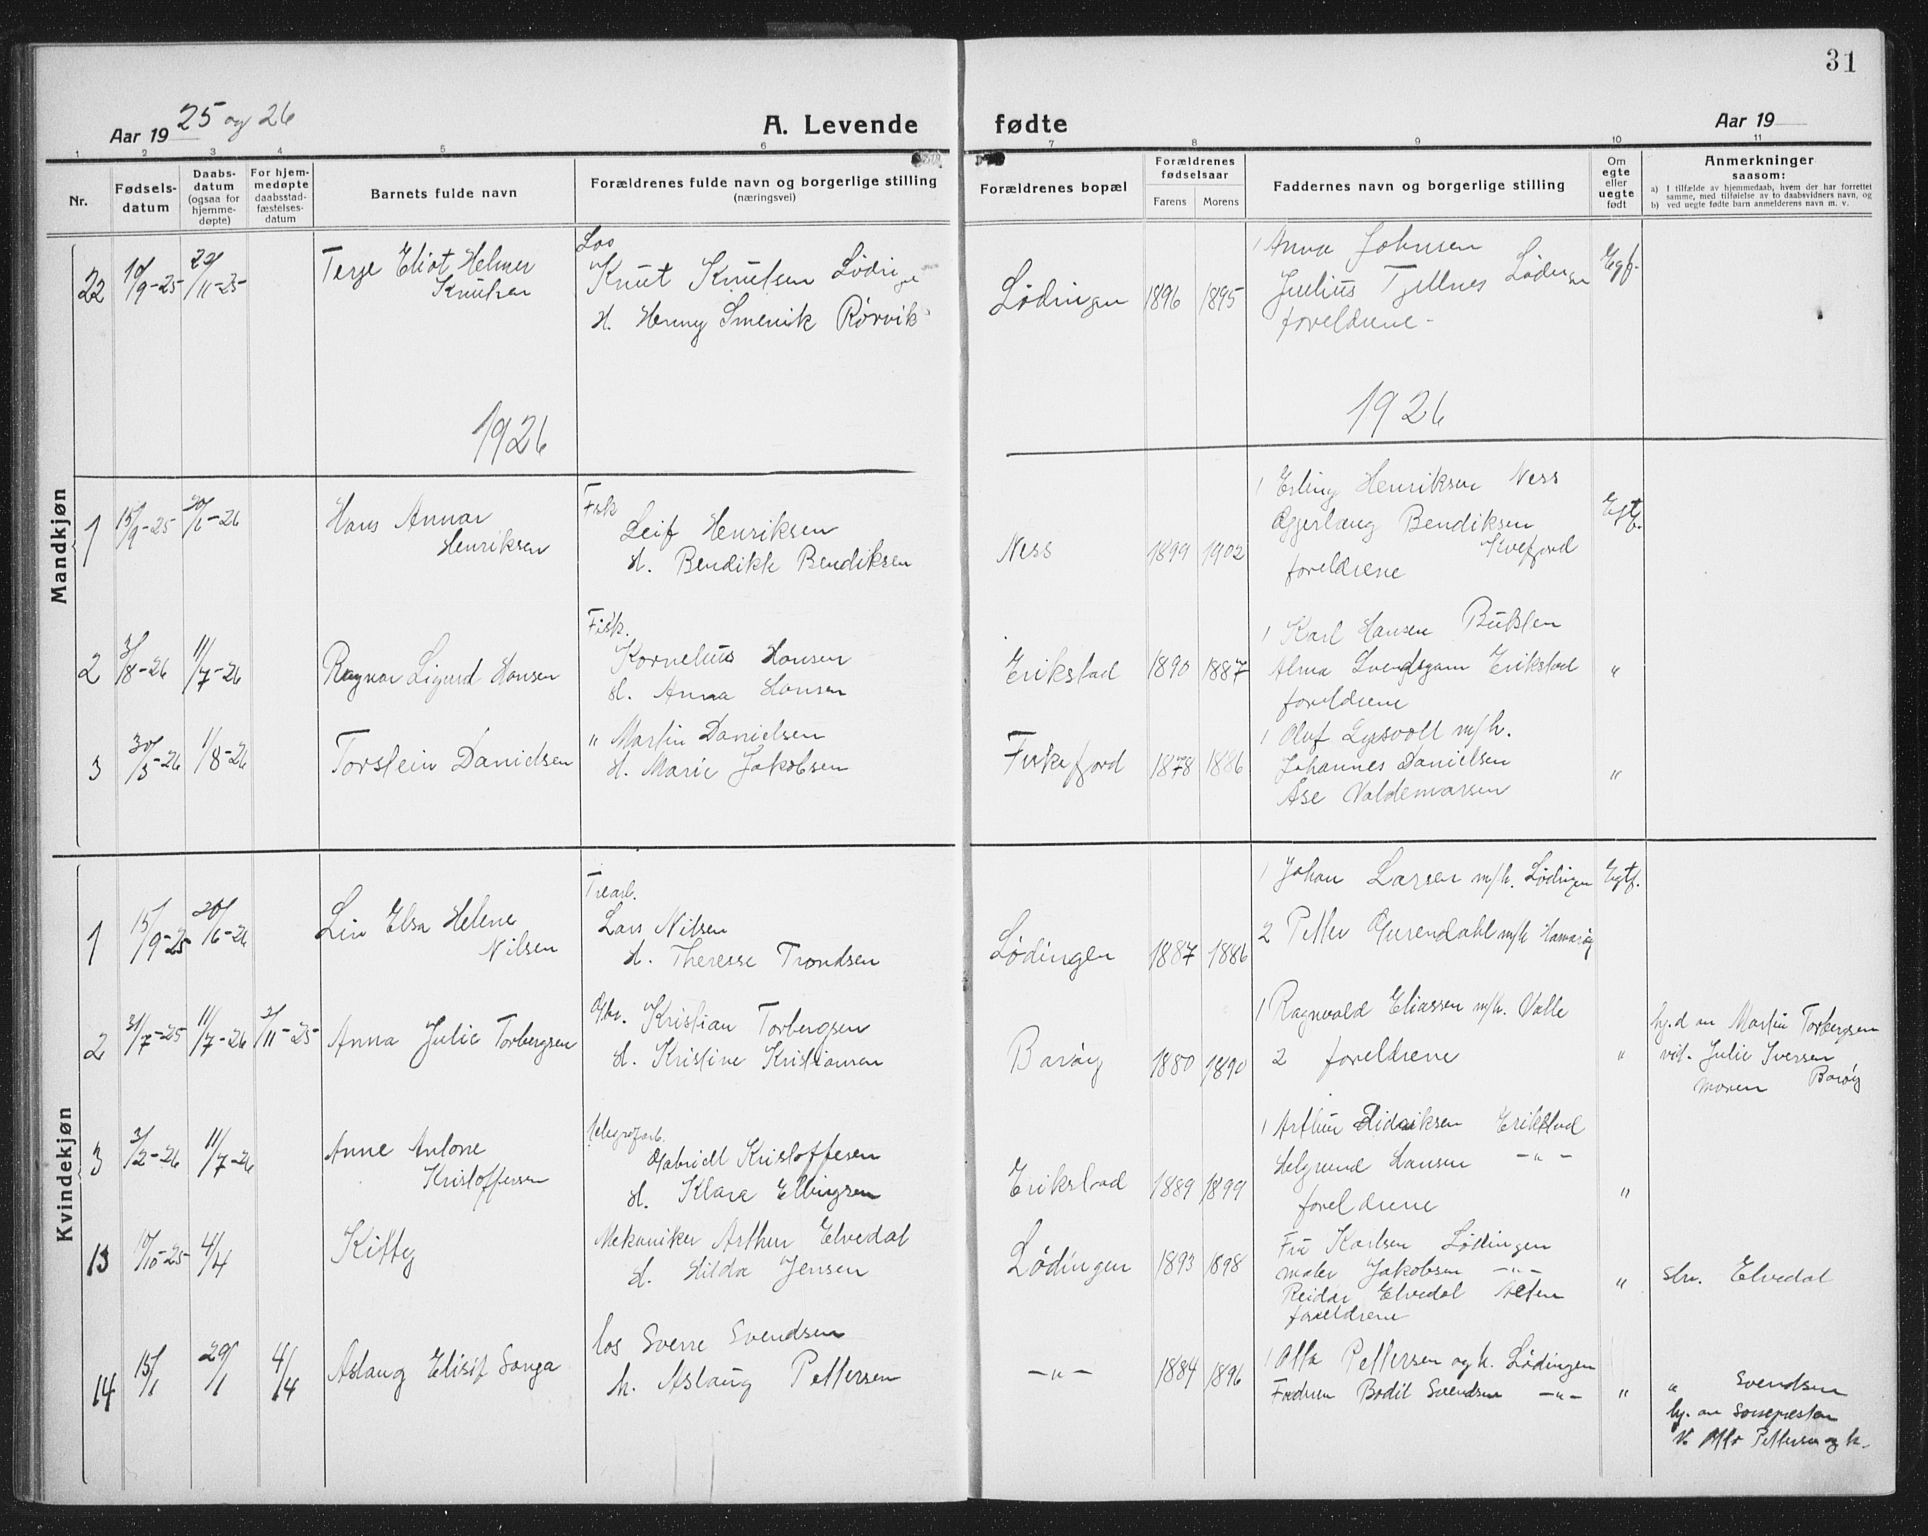 31
Aar 19 25 og 26
A. Levende fødte
Aar 19
1 2 3 4 5 6 7 8 9 10 11
Nr.
Fødsels-
datum
Daabs-
datum
(ogsaa for
hjemme-
døpte)
For hjem-
medøpte
daabsstad-
fæstelses-
datum
Barnets fulde navn
Forældrenes fulde navn og borgerlige stilling
(næringsvei)
Forældrenes bopæl
Forældrenes
fødselsaar
Farens Morens
Faddernes navn og borgerlige stilling
Om
egte
eller
uegte
født
Anmerkninger
saasom:
a) I tilfælde av hjemmedaab, hvem der har forrettet
samme, med tilføielse av to daabsvidners navn, og
b) ved uegte fødte barn anmelderens navn m. v.
Mandkjøn
22 10/9-25 22/11-25
Terje Eliot Helmer
Knutsen
Los
Knut Knutsen Lødingen
H. Henny Smenik Rørvik
Lødingen 1896 1895
1 Anna Johnsen
Julius Tjellnes Lødingen
foreldrene -
Egtf.
1926
1926
1 15/9-25 20/6-26
Hans Annar
Henriksen
Fisk
Leif Henriksen
H. Bendikte Bendiksen
Ness 1899 1902
1 Erling Henriksen Ness
Bendiksen
Kvefjord
foreldrene
Egtf.
2 3/8-26 11/7-26
Ragnar Sigurd Hansen
Fisk.
Kornelius Hansen
H. Anna Hansen
Erikstad 1890 1887
1 Karl Hansen
Alma Erikstad
foreldrene
"
3 30/5-26 1/8-26
Torstein Danielsen
" Martin Danielsen
H. Marie Jakobsen
Fiskefjord 1878 1886
1 Oluf Lysvoll m/h.
Johannes Danielsen
Åse Valdemarsen
"
Kvindekjøn
1 15/9-25 20/6-26
Lin Elsa Helene
Nilsen
Trearb.
Lars Nilsen
H. Therese Trondsen
Lødingen 1887 1886
1 Johan Larsen m/h. Lødingen
2 Petter m/h Hamarøy
Egtf.
2 31/7-25 11/7-26 2/11-25
Anna Julie Torbergsen
Gbr. Kristian Torbergsen
H. Kristine Kristiansen
Barøy 1880 1890
1 Ragnvald Eliassen m/h. Valle
2 foreldrene
"
hj.d av Martin Torbergsen
vit. Julie Iversen
moren Barøy
3 3/2-26 11/7-26
Anne Antone
Kristoffersen
telegrafarb.
Gabriell Kristoffersen
H. Klara Ellingsen
Erikstad 1889 1899
1 Arthur Didriksen Erikstad
Helgrund Hansen -"-
foreldrene
"
13 10/10-25 4/4
Kitty
Mekaniker Arthur Elvedal
H. Hilda Jensen
Lødingen 1893 1898
Fru Karlsen Lødingen
maler Jakobsen -"-
Reidar Elvedal Alten
foreldrene
"
sln. Elvedal
14 15/1 29/1 4/4
Aslaug Elisif Sonja
los Sverre Svendsen
h. Aslaug Pettersen
-"- 1884 1896
1 Otto Pettersen og h. Lødingen
Bodil Svendsen -"-
"
" Svendsen
hj. av Sognepresten
V. Otto Pettersen og h.